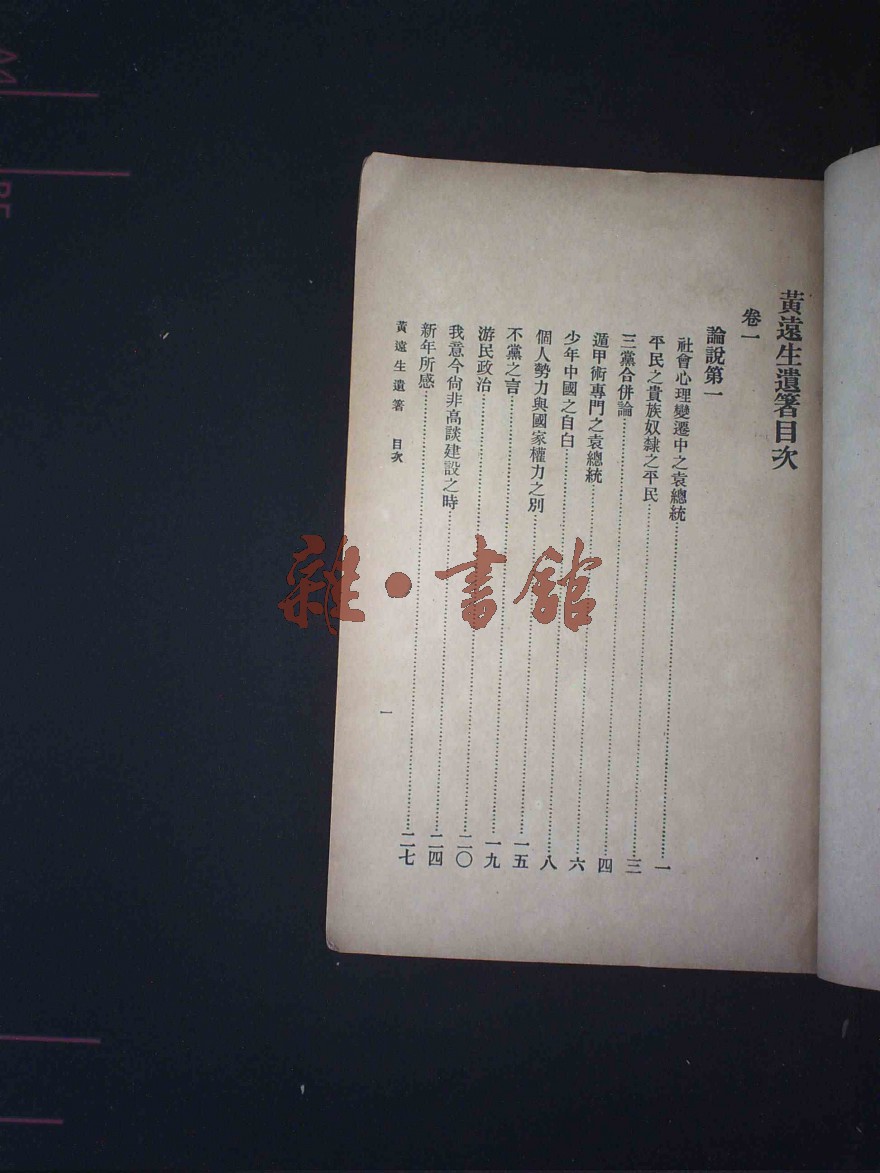 黃遠生遺箸目次
卷一
論說第一
社會心理變遷中之袁總統……一
平民之貴族奴隸之平民……三
三黨合併論……四
遁甲術專門之袁總統……六
少年中國之自白……八
個人勢力與國家權力之別……一五
不黨之言……一九
游民政治……二〇
我意今尙非高談建設之時……二四
新年所感……二七
黃遠生遺箸 目次
一
雜·書館